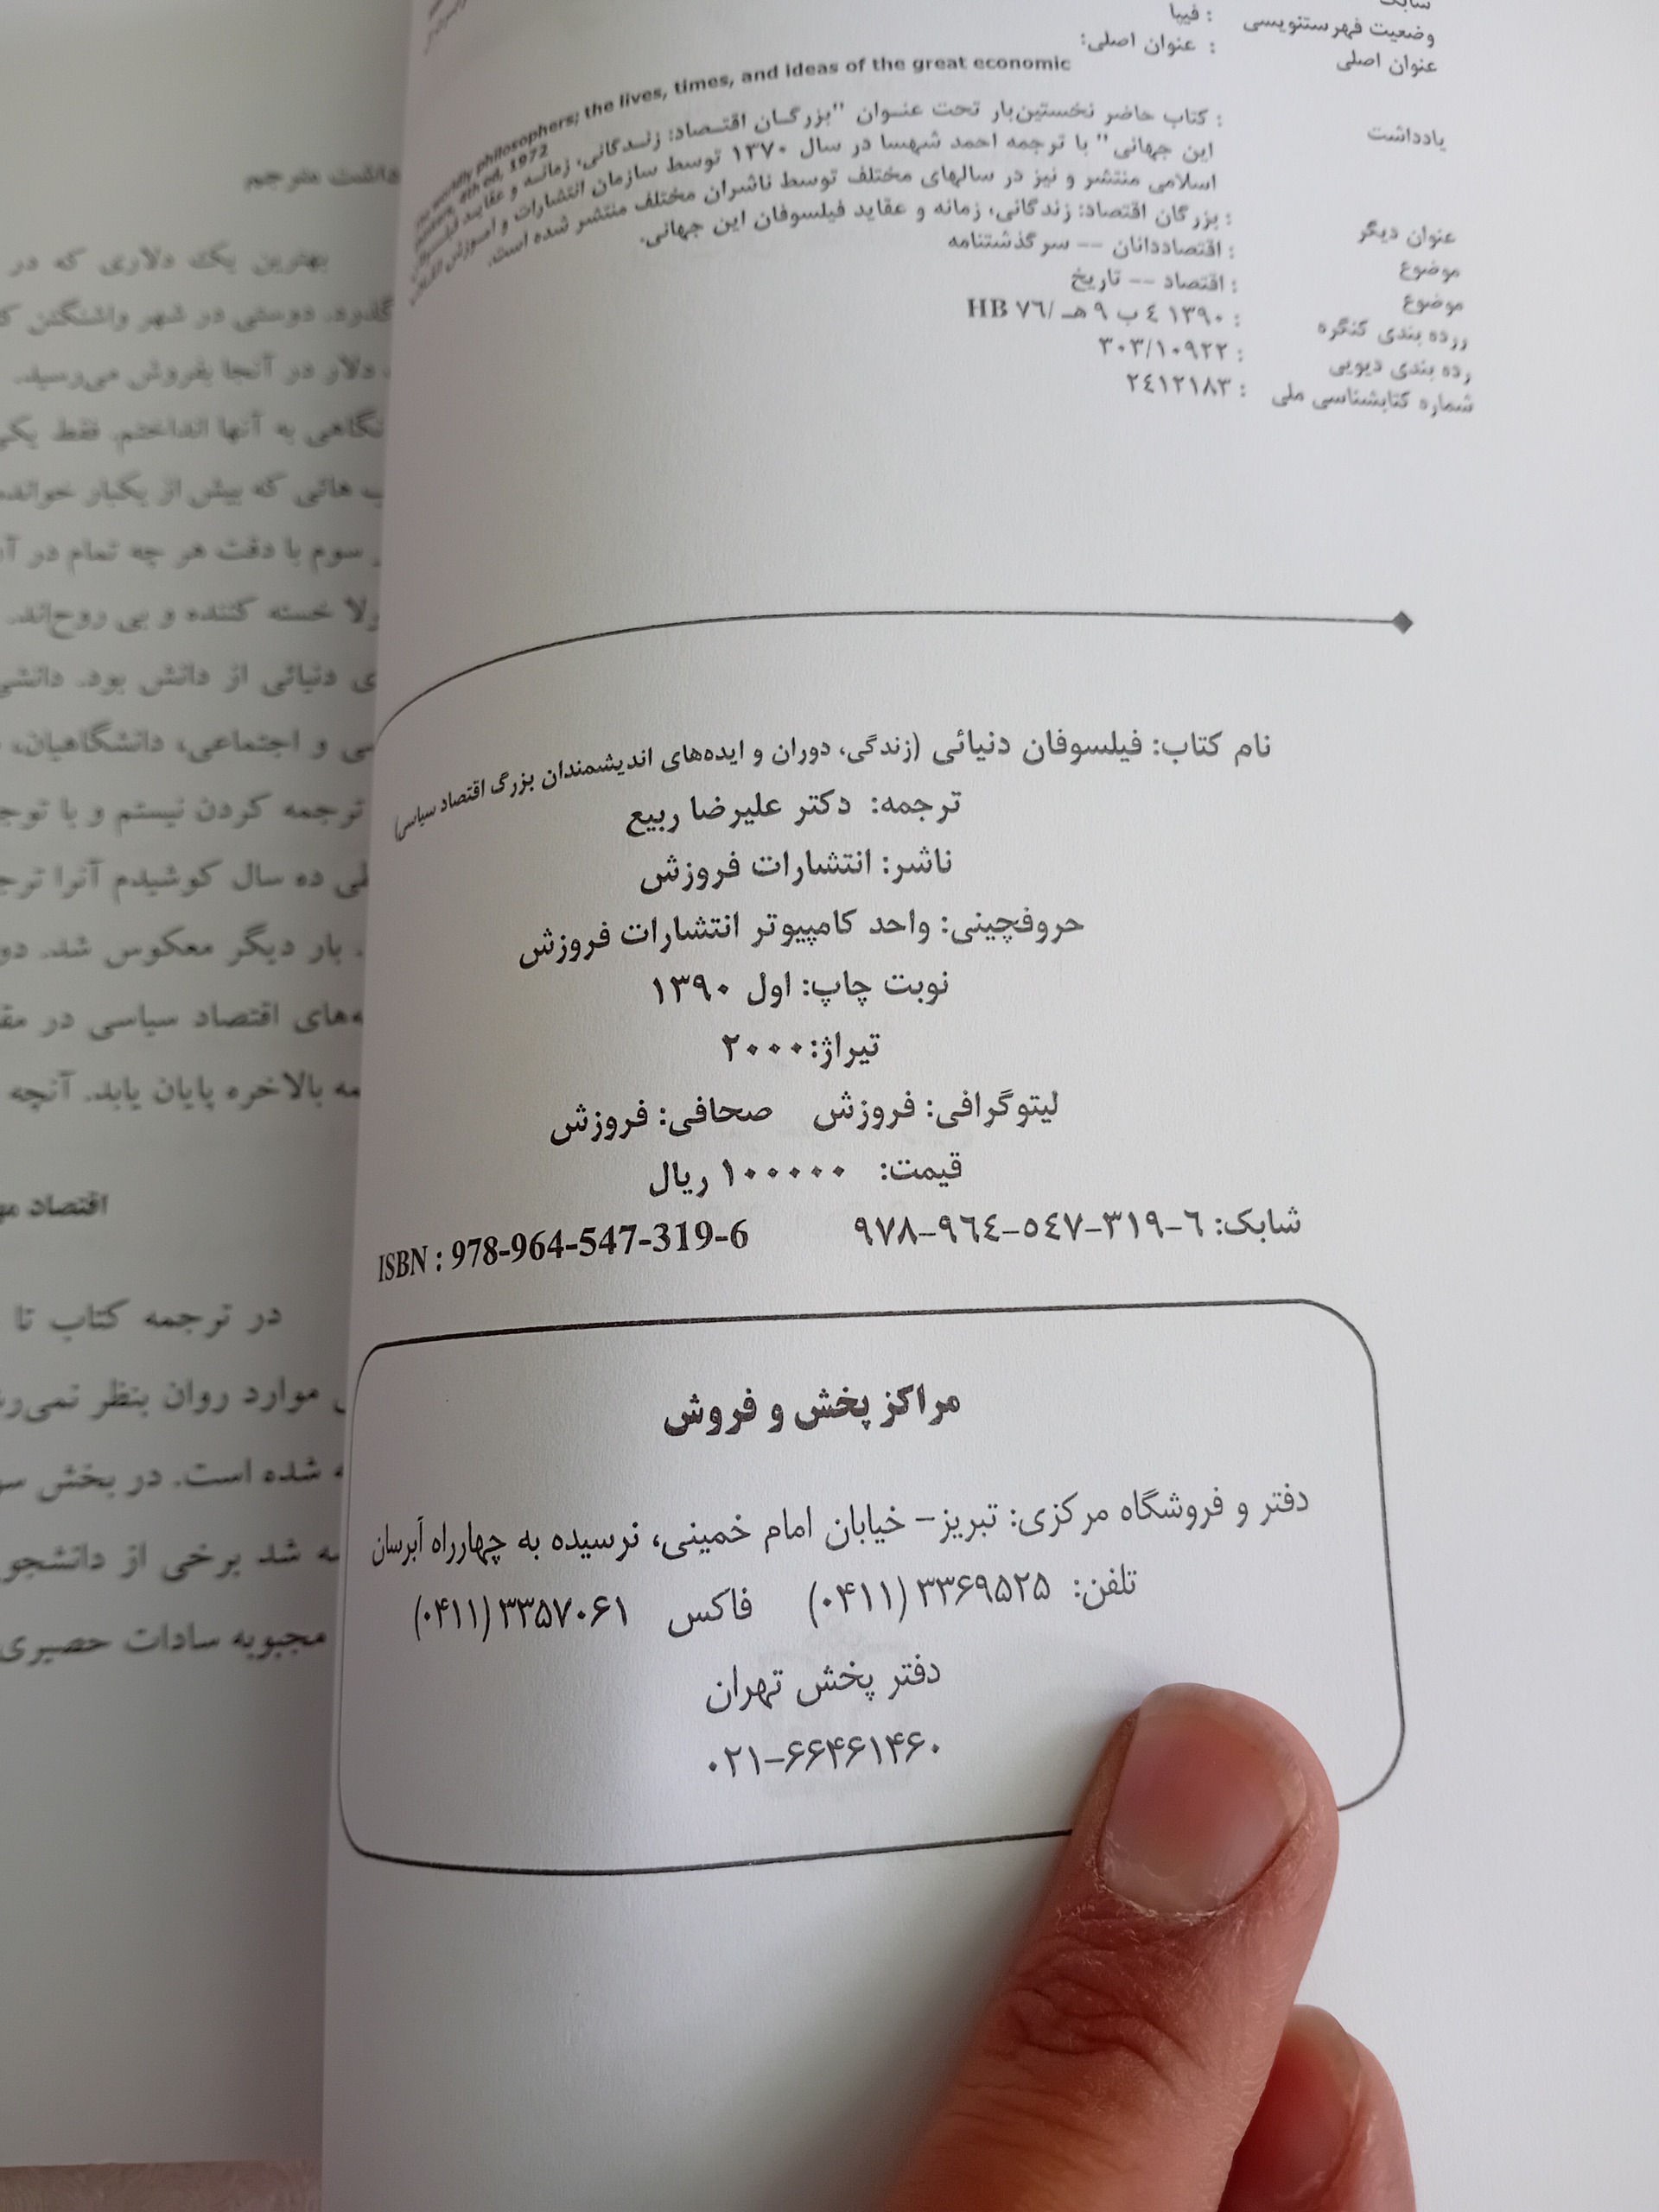 وضعیت فهرستنویسی : فیپا
عنوان اصلی : عنوان اصلی:
the worldly philosophers; the lives, times, and ideas of the great economic
4th ed, 1972
یادداشت : کتاب حاضر نخستین‌بار تحت عنوان "بزرگان اقتصاد: زندگانی، زمانه و عقاید فیلسوفان
این جهانی" با ترجمه احمد شهسا در سال ۱۳۷۰ توسط سازمان انتشارات و آموزش انقلاب
اسلامی منتشر و نیز در سالهای مختلف توسط ناشران مختلف منتشر شده است.
عنوان دیگر : بزرگان اقتصاد: زندگانی، زمانه و عقاید فیلسوفان این جهانی.
موضوع : اقتصاددانان -- سرگذشتنامه
موضوع : اقتصاد -- تاریخ
رده بندی کنگره : ۱۳۹۰ ٤ ب ۹ هـ /۷٦ HB
رده بندی دیویی : ۳۰۳/۱۰۹۲۲
شماره کتابشناسی ملی : ۲٤۱۲۱۸۳
نام کتاب: فیلسوفان دنیائی (زندگی، دوران و ایده‌های اندیشمندان بزرگ اقتصاد سیاسی)
ترجمه: دکتر علیرضا ربیع
ناشر: انتشارات فروزش
حروفچینی: واحد کامپیوتر انتشارات فروزش
نوبت چاپ: اول ۱۳۹۰
تیراژ:۲۰۰۰
لیتوگرافی: فروزش صحافی: فروزش
قیمت: ۱۰۰۰۰۰ ریال
شابک: ٦-۳۱۹-٥٤۷-۹٦٤-۹۷۸ ISBN : 978-964-547-319-6
مراکز پخش و فروش
دفتر و فروشگاه مرکزی: تبریز- خیابان امام خمینی، نرسیده به چهارراه آبرسان
تلفن: ۳۳۶۹۵۲۵ (۰۴۱۱) فاکس ۳۳۵۷۰۶۱ (۰۴۱۱)
دفتر پخش تهران
۰۲۱-۶۶۴۶۱۴۶۰
مترجم
بهترین یک دلاری که در
گذرد. دوستی در شهر واشنگتن
دلار در آنجا بفروش می‌رسید.
نگاهی به آنها انداختم. فقط
هائی که بیش از یکبار
سوم با دقت هر چه تمام در
خسته کننده و بی روح‌اند.
دنیائی از دانش بود.
و اجتماعی، دانشگاهیان،
ترجمه کردن نیستم و با
ده سال کوشیدم آنرا
بار دیگر معکوس شد.
اقتصاد سیاسی در
بالاخره پایان یابد. آنچه
اقتصاد
در ترجمه کتاب تا
موارد روان بنظر
شده است. در بخش
شد برخی از
محبوبه سادات حصیری